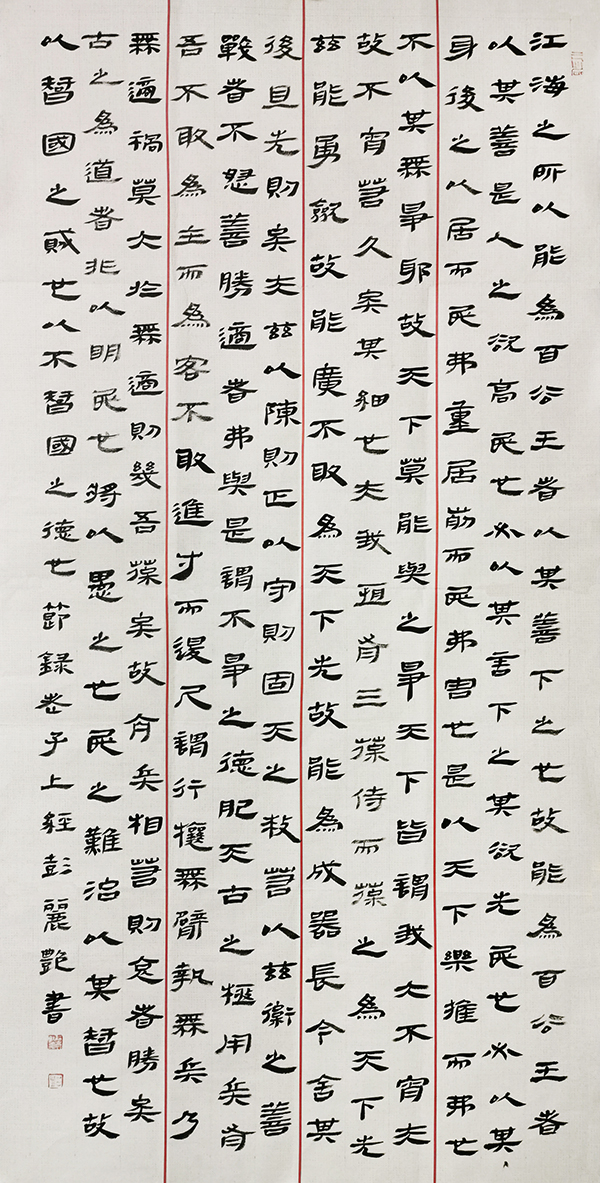 江海之所以能為百谷王者以其善下之也故能為百谷王者
以其善是人之欲高民也必以其言下之其欲先民也必以其
身後之以居而民弗重居前而民弗害也是以天下樂推而弗也
不以其無爭耶故天下莫能與之爭天下皆謂我大不宵夫
故不宵若久矣其細也夫我恆有三葆侍而葆之為天下先
茲能勇故能廣不敢為天下先故能為成器長今舍其
後且先則矣夫茲以陳則正以守則固天之救若以茲衛之善
戰者不怒善勝適者弗與是謂不爭之德肥天古之極用兵有
吾不敢為主而為客不敢進寸而後尺謂行攘無臂執無兵乃
無適禍莫大於無適則幾吾葆矣故兵相若則者勝矣
古之為道者非以明民也將以愚之也民之難治以其智也故
以智國之賊也以不智國之德也節錄老子上經彭麗艷書